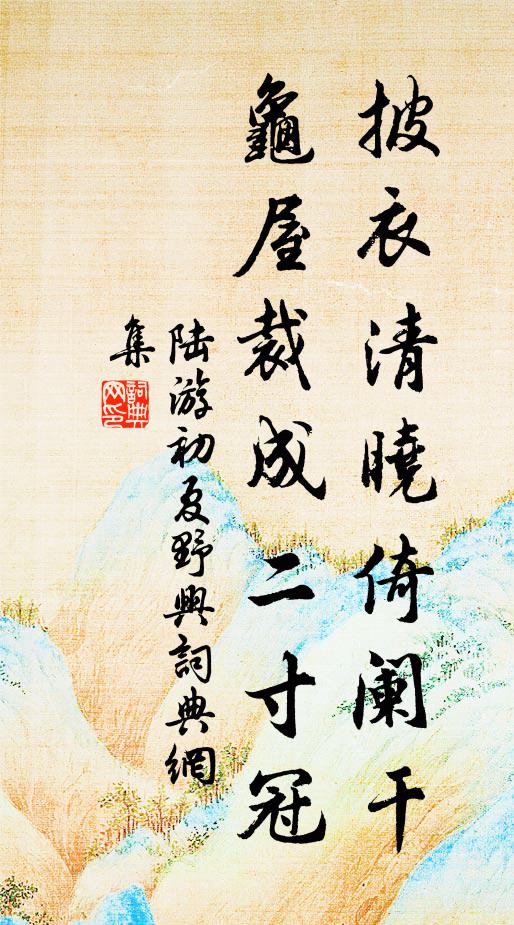 披衣清曉倚阑干
龜屋裁成二寸冠
陆游初夏野興詞典網
集
詞典
网印